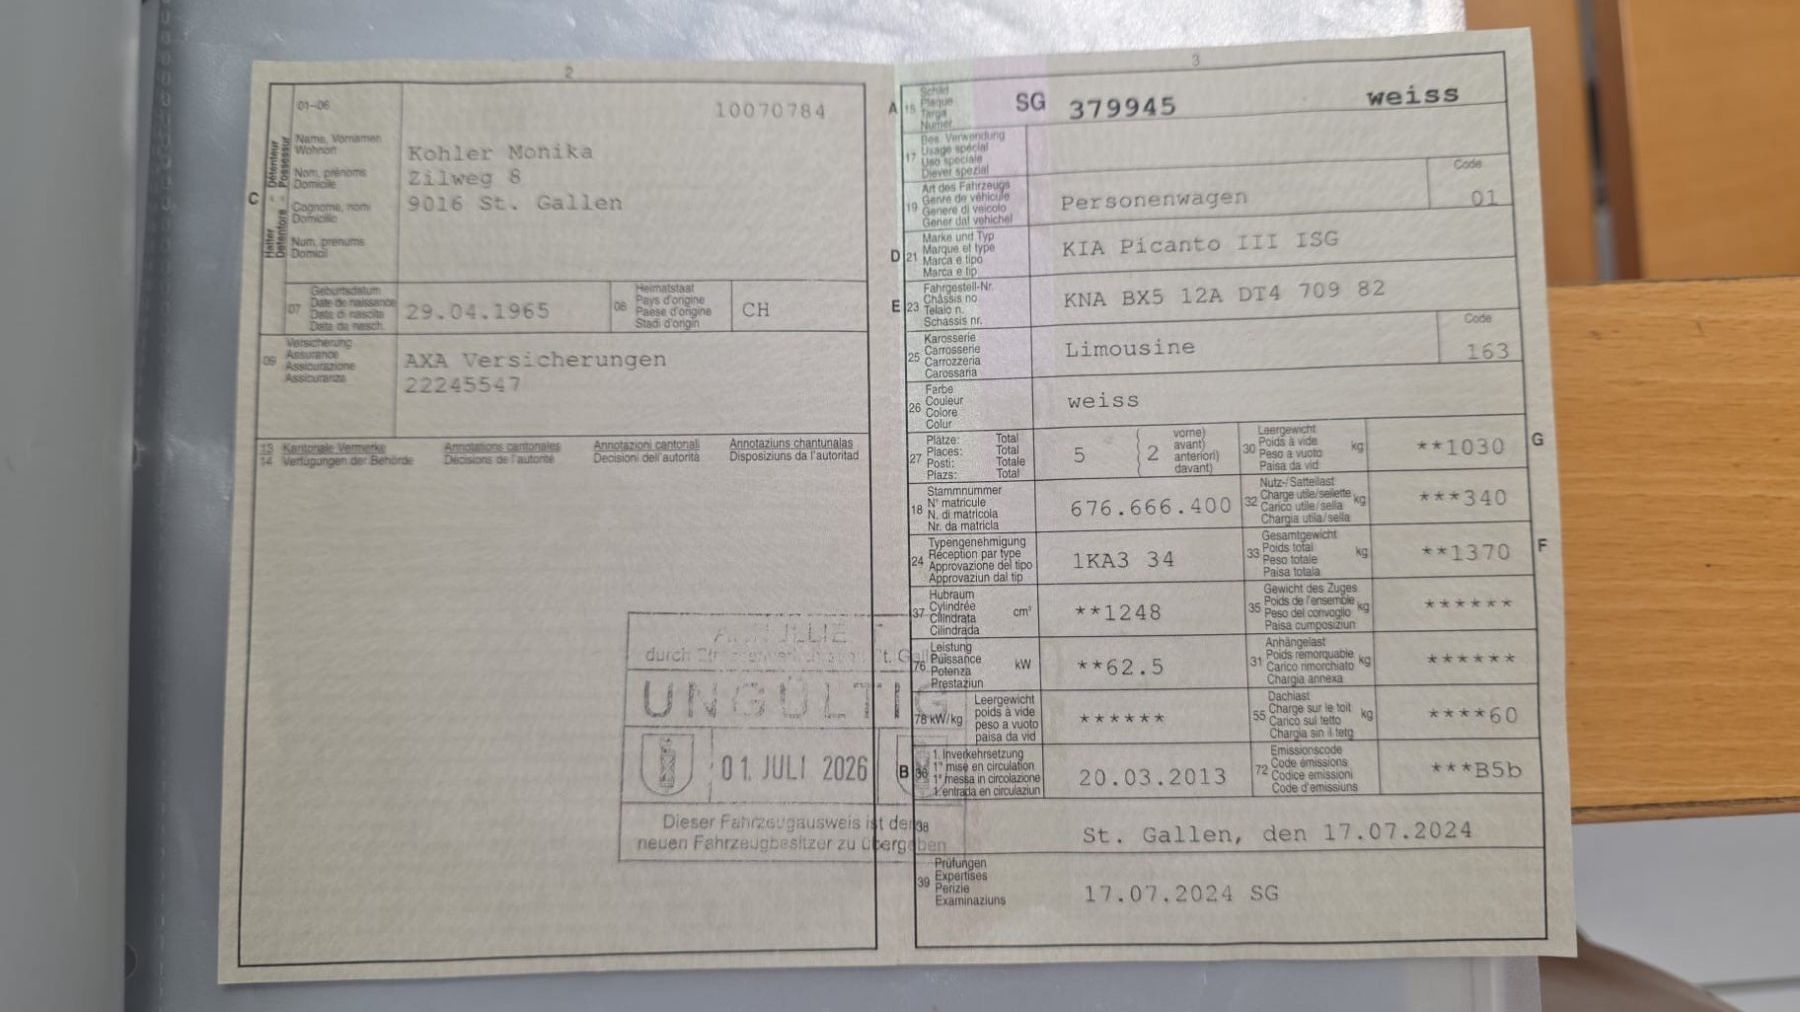 2
01-06
10070784
Halter - Détenteur
Detentore - Possessur
C
Name, Vornamen
Wohnort
Nom, prénoms
Domicile
Cognome, nomi
Domicilio
Num, prenums
Domicil
Kohler Monika
Zilweg 8
9016 St. Gallen
07
Geburtsdatum
Date de naissance
Data di nascita
Data da nasch.
29.04.1965
08
Heimatstaat
Pays d'origine
Paese d'origine
Stadi d'origin
CH
09
Versicherung
Assurance
Assicurazione
Assicuranza
AXA Versicherungen
22245547
13 Kantonale Vermerke
14 Verfügungen der Behörde
Annotations cantonales
Décisions de l'autorité
Annotazioni cantonali
Decisioni dell'autorità
Annotaziuns chantunalas
Disposiziuns da l'autoritad
durch St. Gallen
UNGÜLTIG
01. JULI 2026
Dieser Fahrzeugausweis ist dem
neuen Fahrzeugbesitzer zu übergeben
3
A 15
Schild
Plaque
Targa
Numer
SG 379945 weiss
17
Bes. Verwendung
Usage spécial
Uso speciale
Diever spezial
19
Art des Fahrzeugs
Genre de véhicule
Genere di veicolo
Gener dal vehichel
Personenwagen
Code
01
D 21
Marke und Typ
Marque et type
Marca e tipo
Marca e tip
KIA Picanto III ISG
E 23
Fahrgestell-Nr.
Châssis no
Telaio n.
Schassis nr.
KNA BX5 12A DT4 709 82
25
Karosserie
Carrosserie
Carrozzeria
Carossaria
Limousine
Code
163
26
Farbe
Couleur
Colore
Colur
weiss
27
Plätze: Total
Places: Total
Posti: Totale
Plazs: Total
5
2
vorne)
avant)
anteriori)
davant)
30
Leergewicht
Poids à vide
Peso a vuoto
Paisa da vid
kg
**1030
G
18
Stammnummer
N° matricule
N. di matricola
Nr. da matricla
676.666.400
32
Nutz-/Sattellast
Charge utile/sellette
Carico utile/sella
Chargia utila/sella
kg
***340
24
Typengenehmigung
Réception par type
Approvazione del tipo
Approvaziun dal tip
1KA3 34
33
Gesamtgewicht
Poids total
Peso totale
Paisa totala
kg
**1370
F
37
Hubraum
Cylindrée
Cilindrata
Cilindrada
cm³
**1248
35
Gewicht des Zuges
Poids de l'ensemble
Peso del convoglio
Paisa cumposiziun
kg
******
76
Leistung
Puissance
Potenza
Prestaziun
kW
**62.5
31
Anhängelast
Poids remorquable
Carico rimorchiato
Chargia annexa
kg
******
78 kW/kg
Leergewicht
poids à vide
peso a vuoto
paisa da vid
******
55
Dachlast
Charge sur le toit
Carico sul tetto
Chargia sin il tetg
kg
****60
B 36
1. Inverkehrsetzung
1re mise en circulation
1a messa in circolazione
1. entrada en circulaziun
20.03.2013
72
Emissionscode
Code émissions
Codice emissioni
Code d'emissiuns
***B5b
38
St. Gallen, den 17.07.2024
39
Prüfungen
Expertises
Perizie
Examinaziuns
17.07.2024 SG